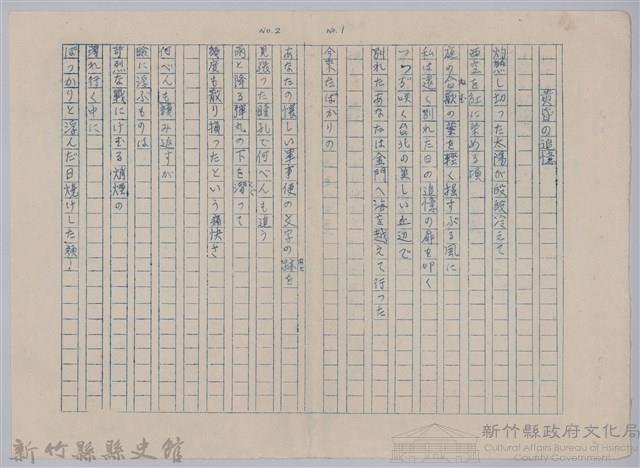 No.1
黄昏の追憶
灼熱し切った太陽が酸酸冷えて
西空を紅に染める頃
庭の合歓の葉を軽く揺すぶる風に
ねむ
私は遠く別れた日の追憶の扉を叩く
つつじ咲く台北の美しい丘辺で
別れたあなたは金門へ海を越えて行った
今来たばかりの
No.2
あなたの懐しい軍事便の文字の跡を
見張った瞳孔で何べんも追う
雨と降る弾丸の下を潜って
幾度も散り損ったという痛快さ
何べんも頼み返すが
瞼に浮ぶものは
苛烈な戦にけむる硝煙の
薄れ行く中に
ぽっかりと浮んだ日焼けした顔!
新竹縣縣史館
新竹縣政府文化局
Cultural Affairs Bureau of Hsinchu County Government